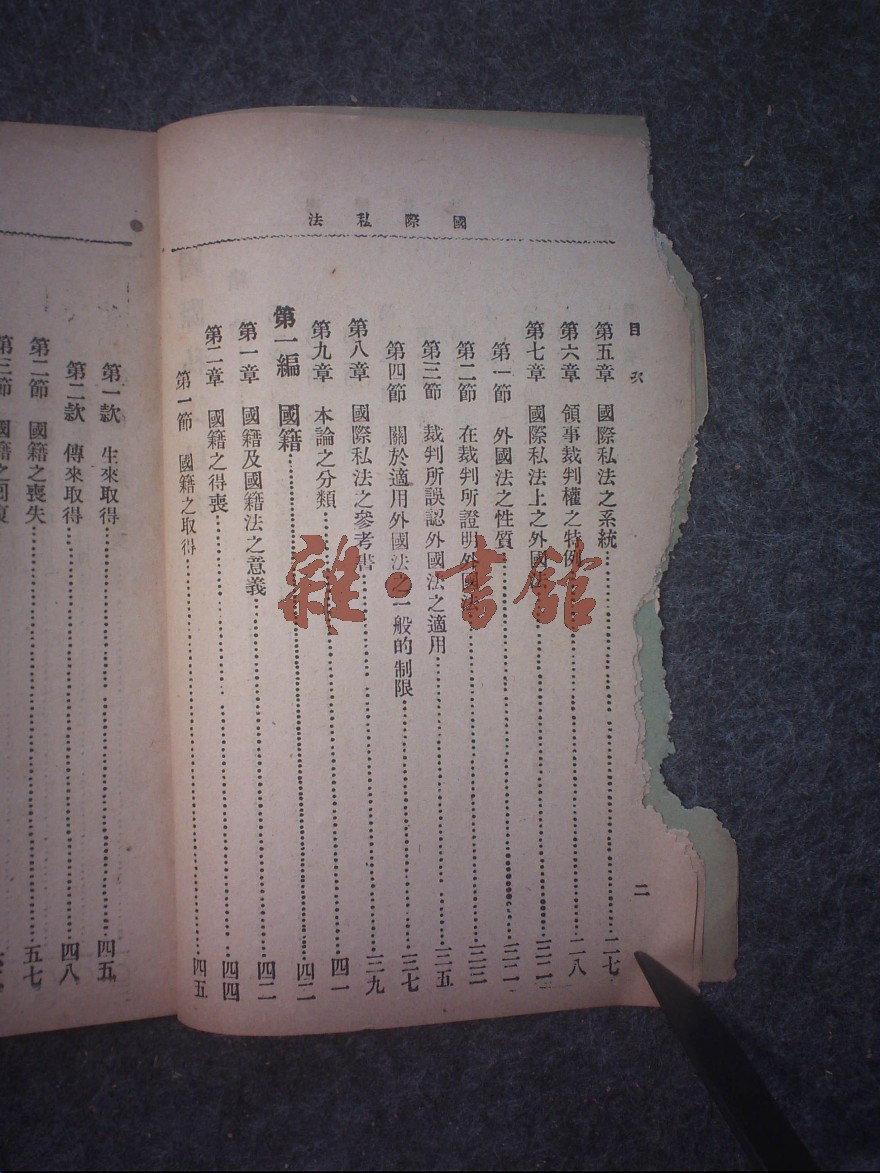 國際私法
目次 二
第五章 國際私法之系統……二七
第六章 領事裁判權之特例……二八
第七章 國際私法上之外國法……三二
第一節 外國法之性質……三二
第二節 在裁判所證明外國法……三三
第三節 裁判所誤認外國法之適用……三五
第四節 關於適用外國法之一般的制限……三七
第八章 國際私法之參考書……三九
第九章 本論之分類……四一
第一編 國籍……四二
第一章 國籍及國籍法之意義……四二
第二章 國籍之得喪……四四
第一節 國籍之取得……四五
第一款 生來取得……四五
第二款 傳來取得……四八
第二節 國籍之喪失……五七
雜·書館